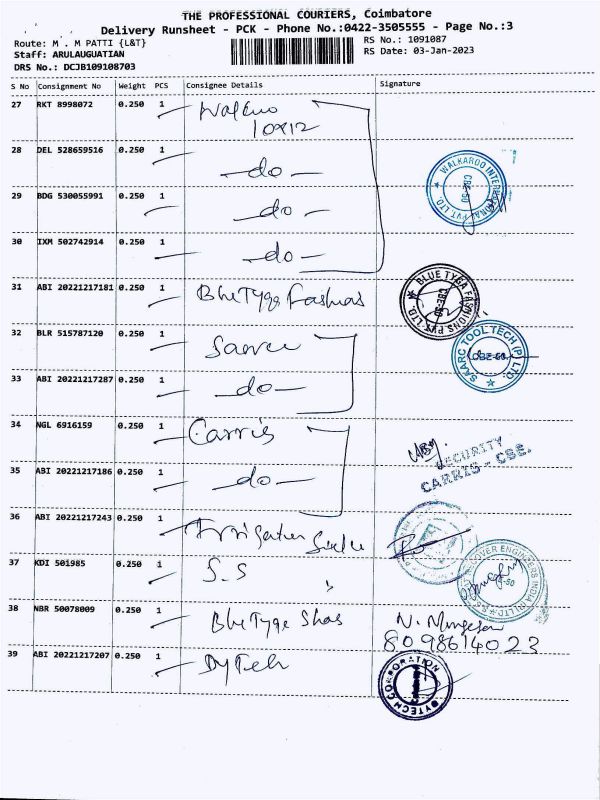 THE PROFESSIONAL COURIERS, Coimbatore
Delivery Runsheet - PCK - Phone No.:0422-3505555 - Page No.:3
Route: M . M PATTI {L&T}
RS No.: 1091087
Staff: ARULAUGUATIAN
RS Date: 03-Jan-2023
DRS No.: DCJB109108703
S No Consignment No Weight PCS Consignee Details Signature
27 RKT 8998072 0.250 1
10912
28 DEL 528659516 0.250 1 -do-
WALKAROO INTERNATIONAL PVT LTD.
CBE-50
29 BDG 530055991 0.250 1 -do-
30 IXM 502742914 0.250 1 -do-
31 ABI 20221217181 0.250 1 BlueTyga Fashions
BLUE TYGA FASHIONS PVT. LTD.
CBE-50
32 BLR 515787120 0.250 1
SAARC TOOL TECH (P) LTD.
33 ABI 20221217287 0.250 1 -do-
34 NGL 6916159 0.250 1 Carris
SECURITY
CARRIS - CBE.
35 ABI 20221217186 0.250 1 -do-
36 ABI 20221217243 0.250 1 Irrigation
37 KDI 501985 0.250 1 S.S
ENGINEERS INDIA (P) LTD
38 NBR 50078009 0.250 1 BlueTyga
8098614023
39 ABI 20221217207 0.250 1 DyTech
CORPORATION